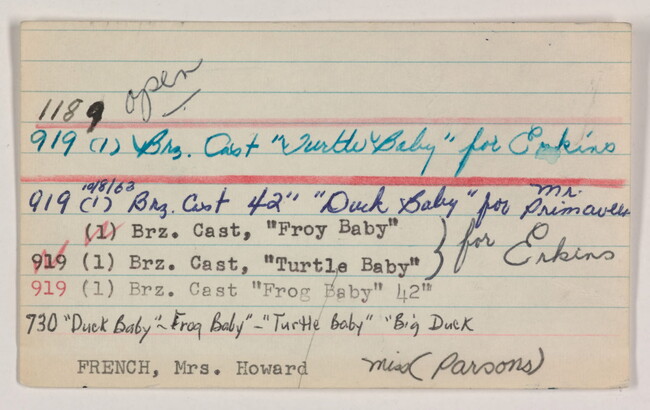 open
1189
919 (1) Brz. Cast "Turtle Baby" for Erkins
10/8/63 Mr.
919 (1) Brz. Cast 42" "Duck Baby" for Primavera
(1) Brz. Cast, "Froy Baby"
919 (1) Brz. Cast, "Turtle Baby" } for Erkins
919 (1) Brz. Cast "Frog Baby" 42"
730 "Duck Baby" - Frog Baby" - "Turtle Baby" "Big Duck
FRENCH, Mrs. Howard Miss (Parsons)